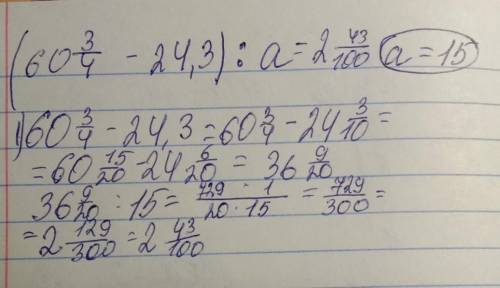 (60 3/4 - 24,3) : a = 2 43/100 a = 15
1) 60 3/4 - 24,3 = 60 3/4 - 24 3/10 =
= 60 15/20 - 24 6/20 = 36 9/20
36 9/20 : 15 = 729·1/20·15 = 729/300 =
= 2 129/300 = 2 43/100